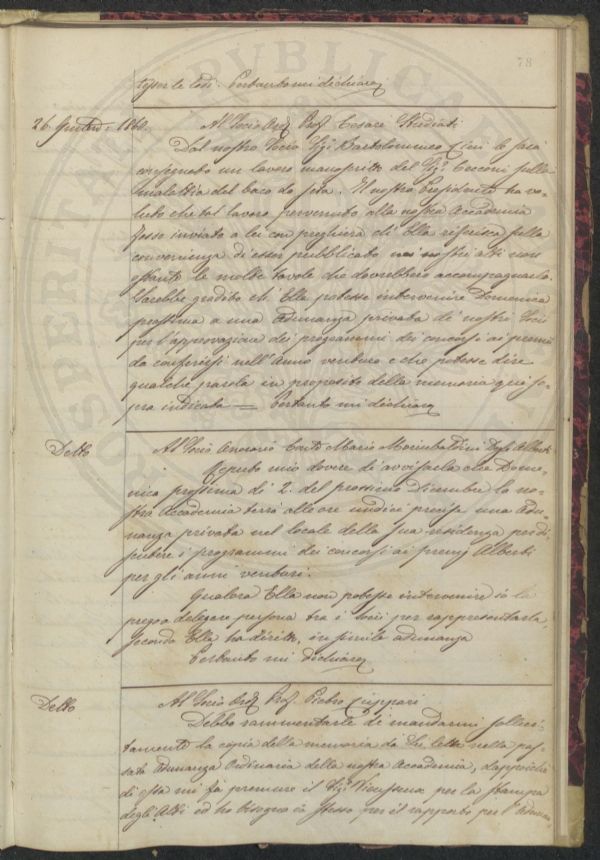 78
tesser le lodi. Pertanto mi dichiaro
26. 1860. Al Socio Ord. Prof. Cesare Studiati
Dal nostro Socio Sigr. Bartolommeo Cini le sarà
consegnato un lavoro manoscritto del Sigr. Cecconi sulla
malattia del baco da seta. Il nostro Presidente ha vo-
luto che tal lavoro pervenuto alla nostra Accademia
fosse inviato a lei con preghiera ch'Ella riferisca sulla
convenienza d'esser pubblicato nei nostri atti non
ostanti le molte tavole che dovrebbero accompagnarlo.
Sarebbe gradito ch'Ella potesse intervenire Domenica
prossima a una adunanza privata de' nostri Socii
per l'approvazione dei programmi dei concorsi ai premi
da conferirsi nell'Anno venturo e che potesse dire
qualche parola in proposito della memoria quì so-
pra indicata — Pertanto mi dichiaro
Detto Al Socio Onorario Conte Mario Degli Alberti
Reputo mio dovere di avvisarla che Dome-
nica prossima dì 2. del prossimo Dicembre la no-
stra Accademia terrà alle ore undici precise una Adu-
nanza privata nel locale della sua residenza per di-
scutere i programmi dei concorsi ai premj Alberti
per gli anni venturi.
Qualora Ella non potesse intervenire io la
prego a delegare persona tra i Socii per rappresentarla,
secondo Ella ha diritto, in simile adunanza
Pertanto mi dichiaro
Detto Al Socio Ord. Prof. Pietro Cuppari
Debbo rammentarle di mandarmi solleci-
tamente la copia della memoria da Lei letta nella pas-
sata Adunanza Ordinaria della nostra Accademia,
di essa mi fa premure il Sigr. per la stampa
degli Atti ed ho bisogno io stesso per il rapporto per l'